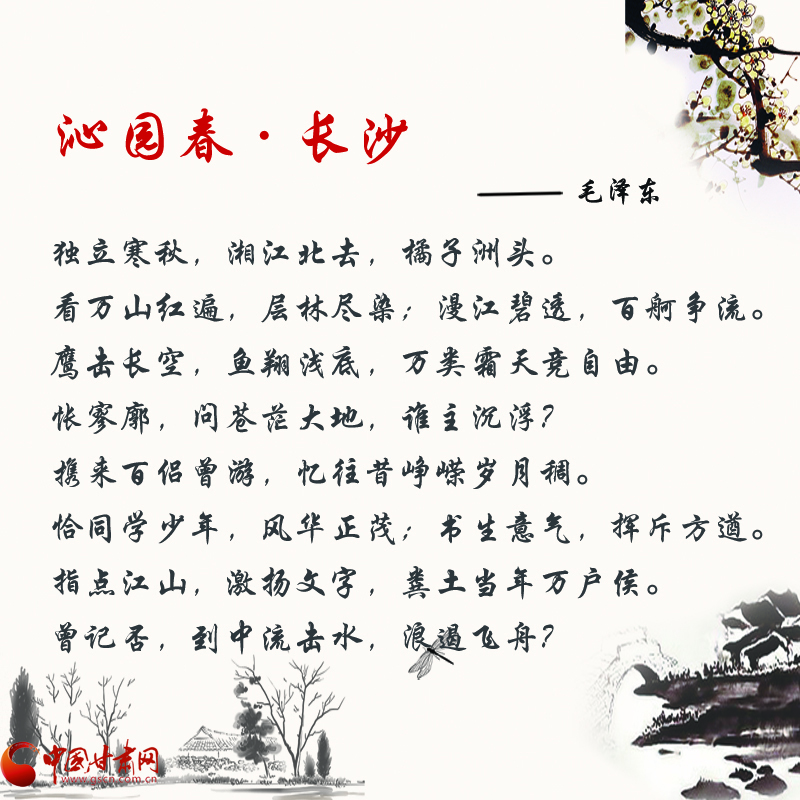 沁园春·长沙
——毛泽东
独立寒秋，湘江北去，橘子洲头。
看万山红遍，层林尽染；漫江碧透，百舸争流。
鹰击长空，鱼翔浅底，万类霜天竞自由。
怅寥廓，问苍茫大地，谁主沉浮？
携来百侣曾游，忆往昔峥嵘岁月稠。
恰同学少年，风华正茂；书生意气，挥斥方遒。
指点江山，激扬文字，粪土当年万户侯。
曾记否，到中流击水，浪遏飞舟？
中国甘肃网
www.gscn.com.cn